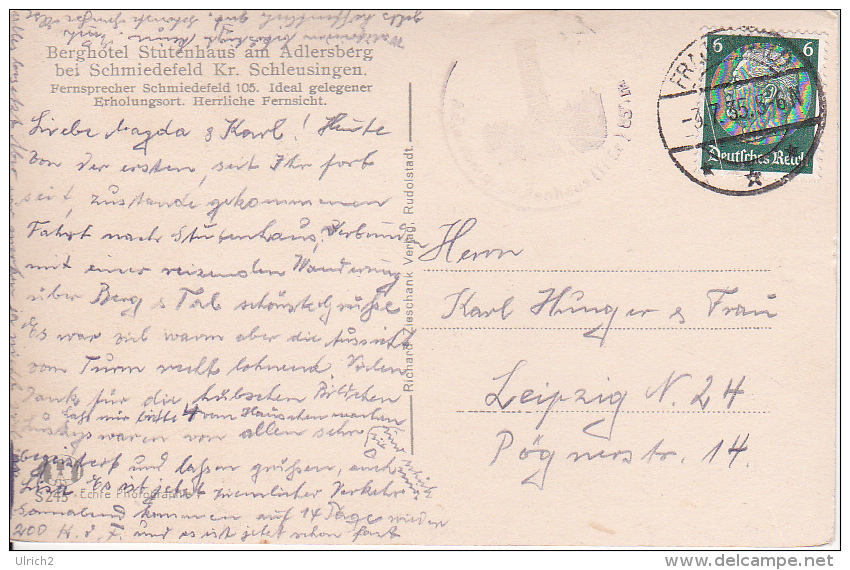 Berghotel Stutenhaus am Adlersberg
bei Schmiedefeld Kr. Schleusingen.
Fernsprecher Schmiedefeld 105. Ideal gelegener
Erholungsort. Herrliche Fernsicht.
Liebe Magda & Karl! Heute
von der ersten, seit Ihr fort
seit, zustande gekommenen
Fahrt nach Stutenhaus, verbunden
mit einer reizenden Wanderung
über Berg & Tal schönste Grüsse
Es war viel warm aber die Aussicht
vom Turm recht lohnend. Vielen
Dank für die hübschen Bildchen
4 vom Häuschen machen
waren von allen sehr
begeistert und lassen grüssen, auch
Lisa. Es ist jetzt ziemlicher Verkehr
Sonnabend kommen auf 14 Tage wieder
200 K. d. F. und es ist jetzt schon fast
S 245 Echte Photographie
Richard Zieschank Verlag, Rudolstadt.
6 6
Deutsches Reich
-3.7.35.5-6N
Herrn
Karl Hunger & Frau
Leipzig N. 24
Pögnerstr. 14.
Ulrich2
delcampe.net